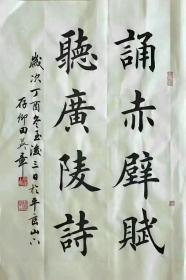 誦赤壁賦
聽廣陵詩
歲次丁酉冬至後三日於平谷山下
存御田英章